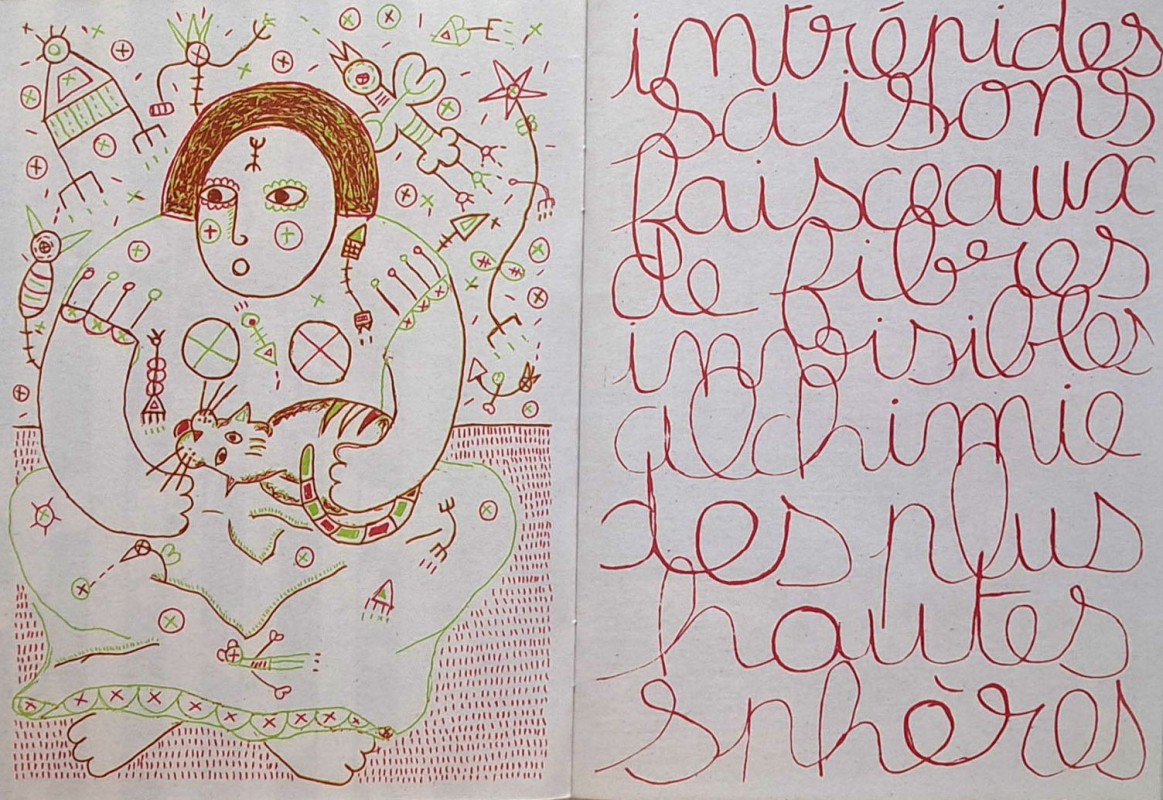 intrépides
saisons
faisceaux
de fibres
invisibles
alchimie
des plus
hautes
sphères